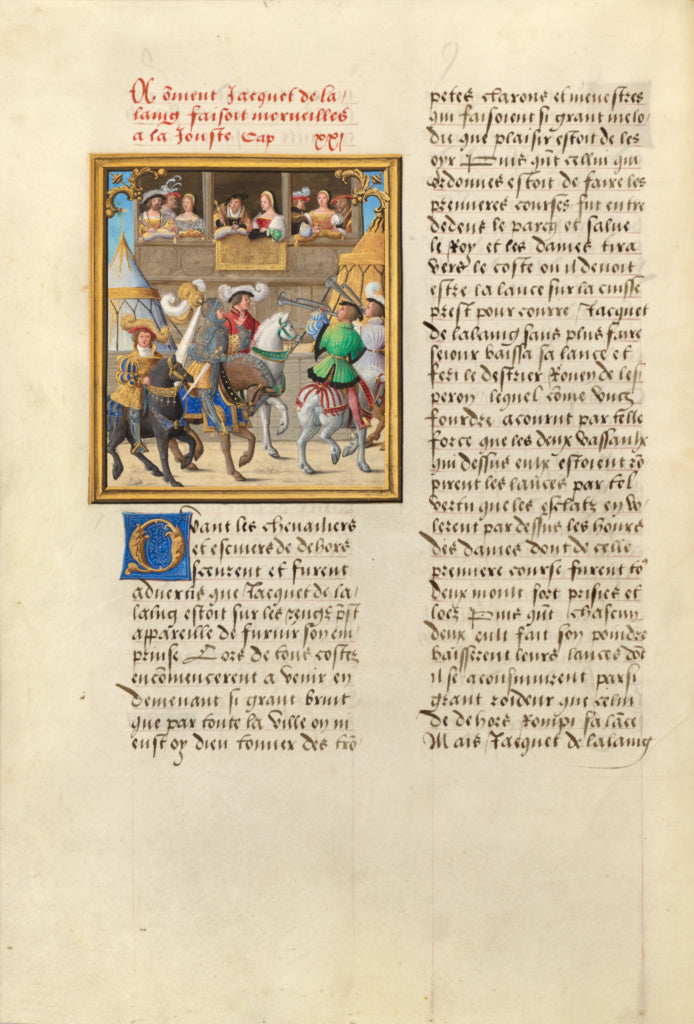 Coment Jacquet de la/
laing faisoit merveilles
a la Jouste Cap xxi
Quant les chevailiers
et escuiers de dehors
sceurent et furent
advertis que Jacquet de la/
laing estoit sur les rengz pst
appareille de furnir son em/
prinse Lors de tous costez
encomencerent a venir en
demenant si grant bruit
que par toute la ville on n
eust oy dieu tonner des tro/
petes clarons et menestres
qui faisoient si grant melo/
die que plaisir estoit de les
oyr Puis qnt cellui qui
ordonnes estoit de faire les
premieres courses fut entre
dedens le parcq et salue
le Roy et les dames tira
vers le coste ou il devoit
estre la lance sur la cuisse
prest pour courre Jacquet
de lalaing sans plus faire
seiour baissa sa lance et
feri le destrier de les/
peron lequel come ung
fourdre acourut par telle
force que les deux vassaulx
qui dessus eulx estoient ro/
pirent les lances par tel
vertu que les esclatz en vo/
lerent par dessus les hours
des dames dont de celle
premiere course furent to9
deux moult fort prisies et
loez Puis qnt chascun
deux eult fait son poindre
baisserent leurs lances dot
il se aconsuiurent par si
grant roideur que celui
de dehors Rompi sa lace
Mais Jacquet de lalaing